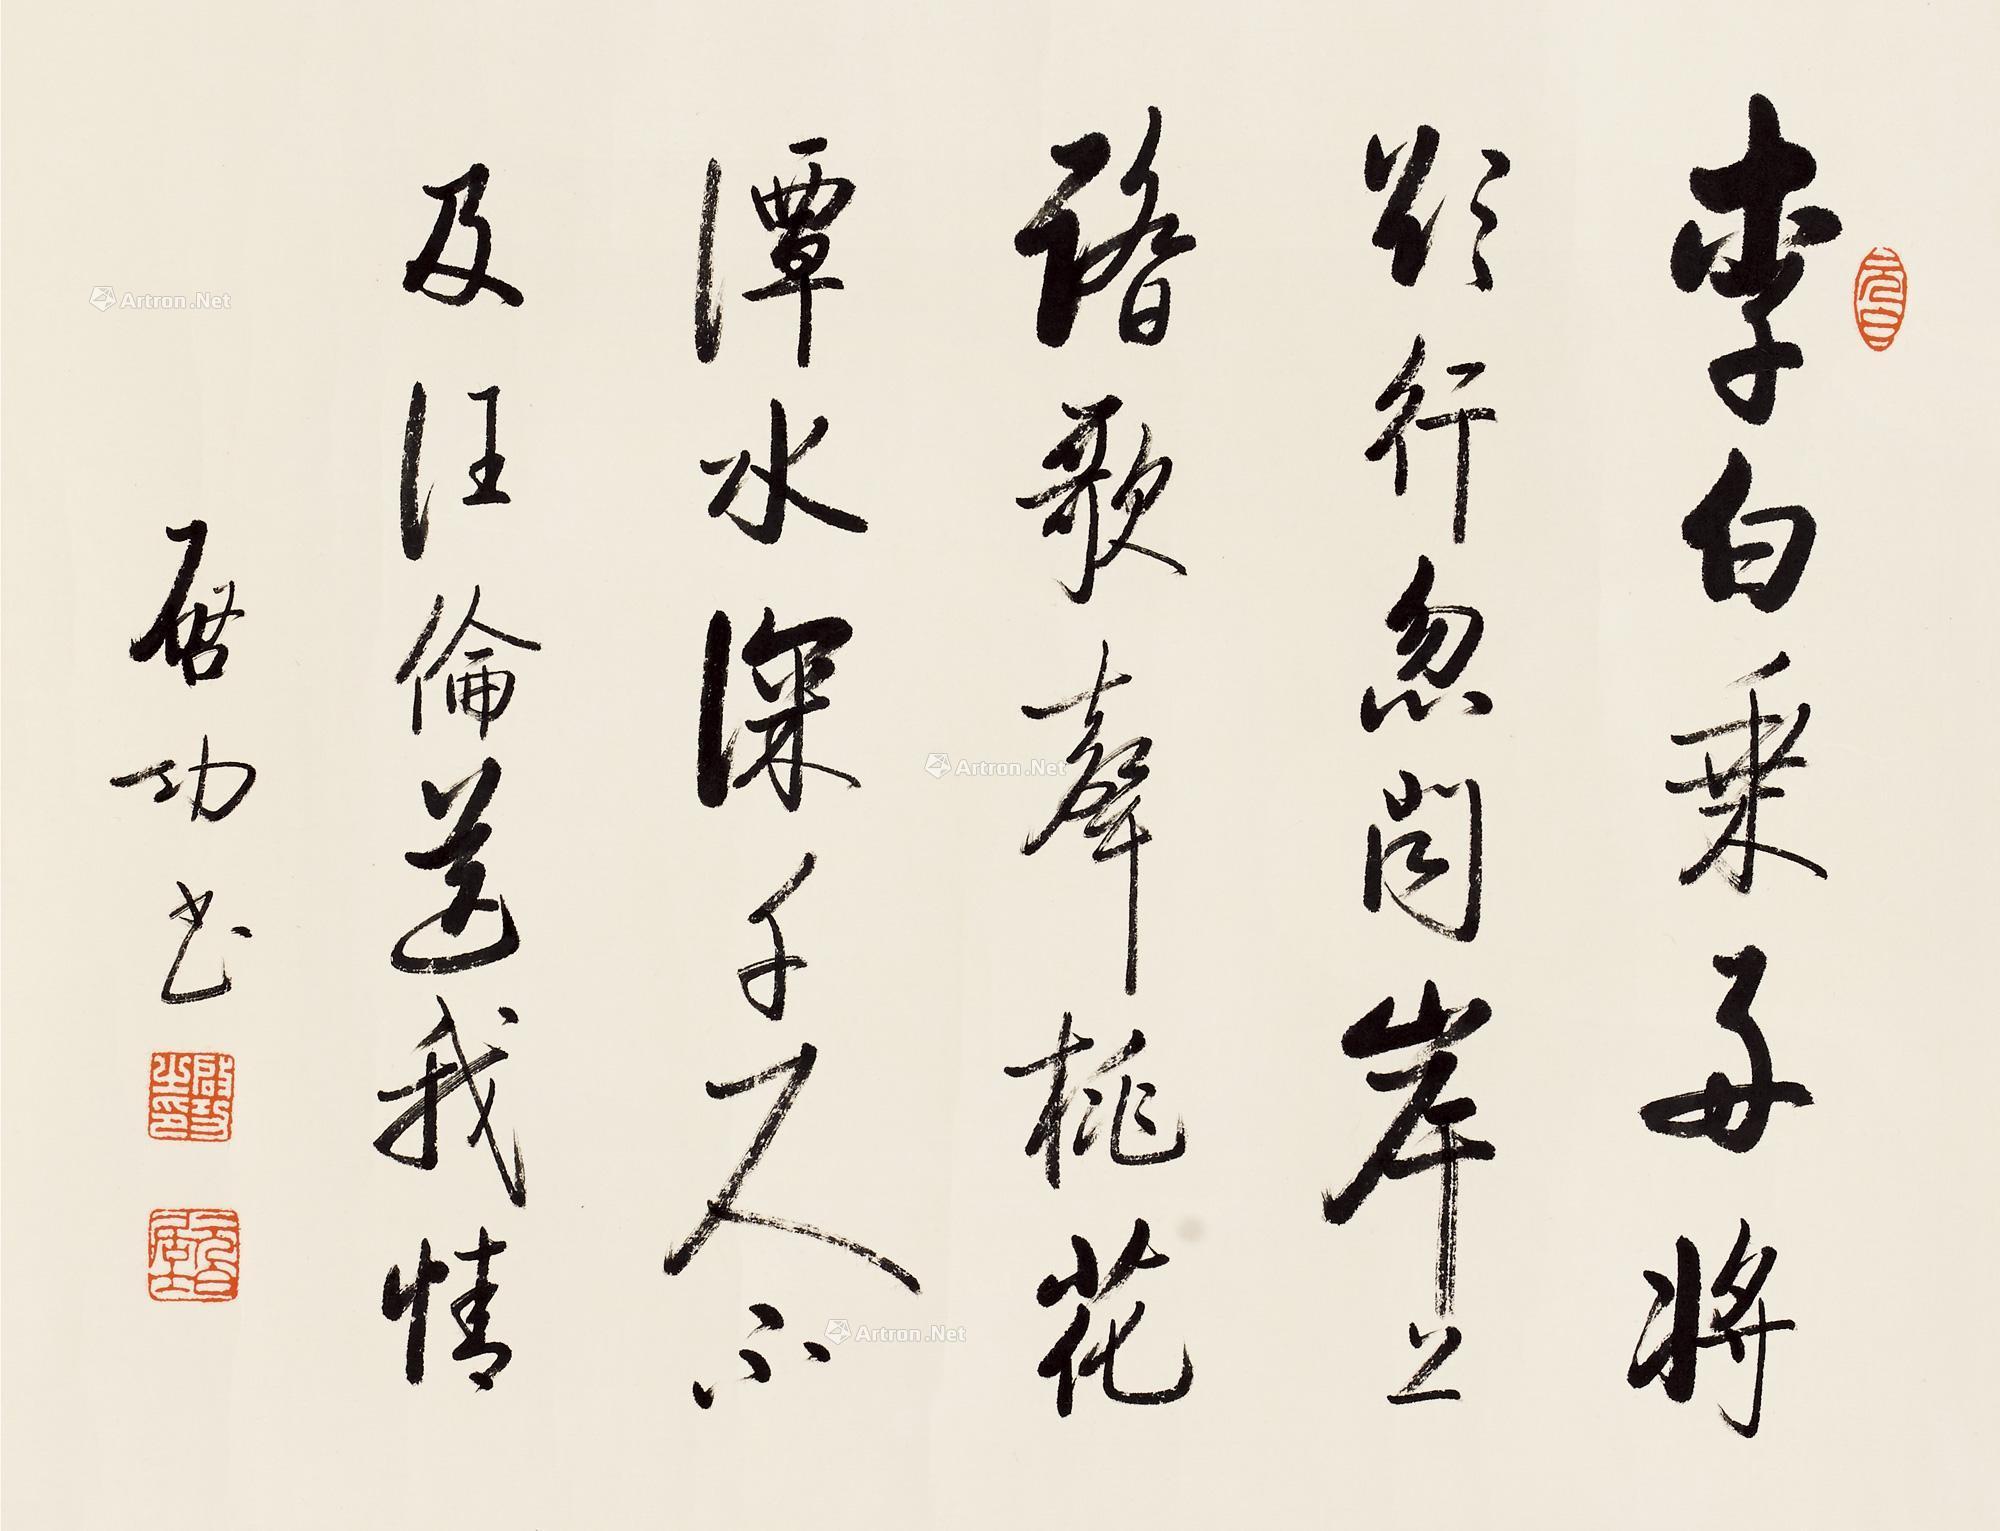 李白乘舟將
欲行忽聞岸上
踏歌聲桃花
潭水深千尺不
及汪倫送我情
啓功書
元白
啓功之印
Artron.Net
Artron.Net
Artron.Net